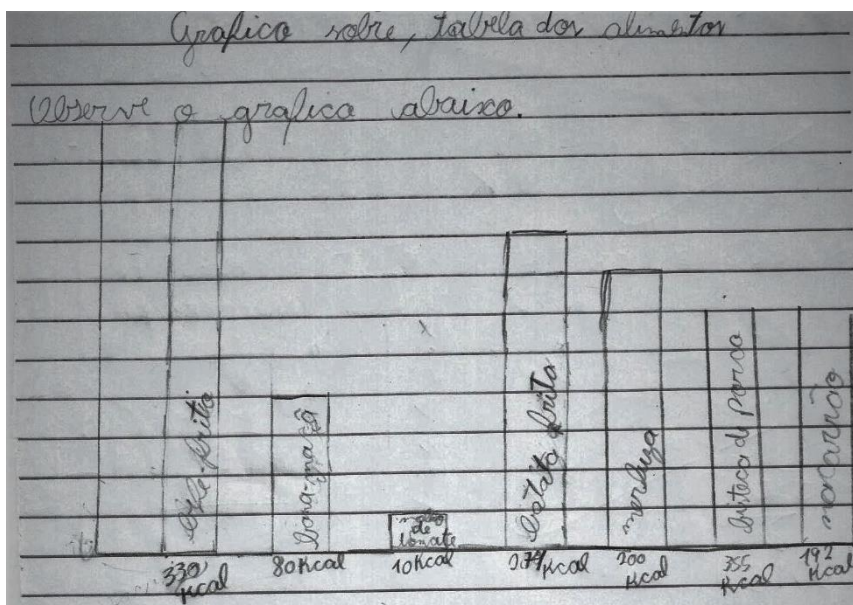 Grafico sobre, tabela dos alimentos
Observe o grafico abaixo.
bife-frito
maçã
molho
de
tomate
batata frita
merluza
bisteca de porco
macarrão
330
Kcal
80 Kcal
10 Kcal
274 Kcal
200
Kcal
355
Kcal
192
Kcal